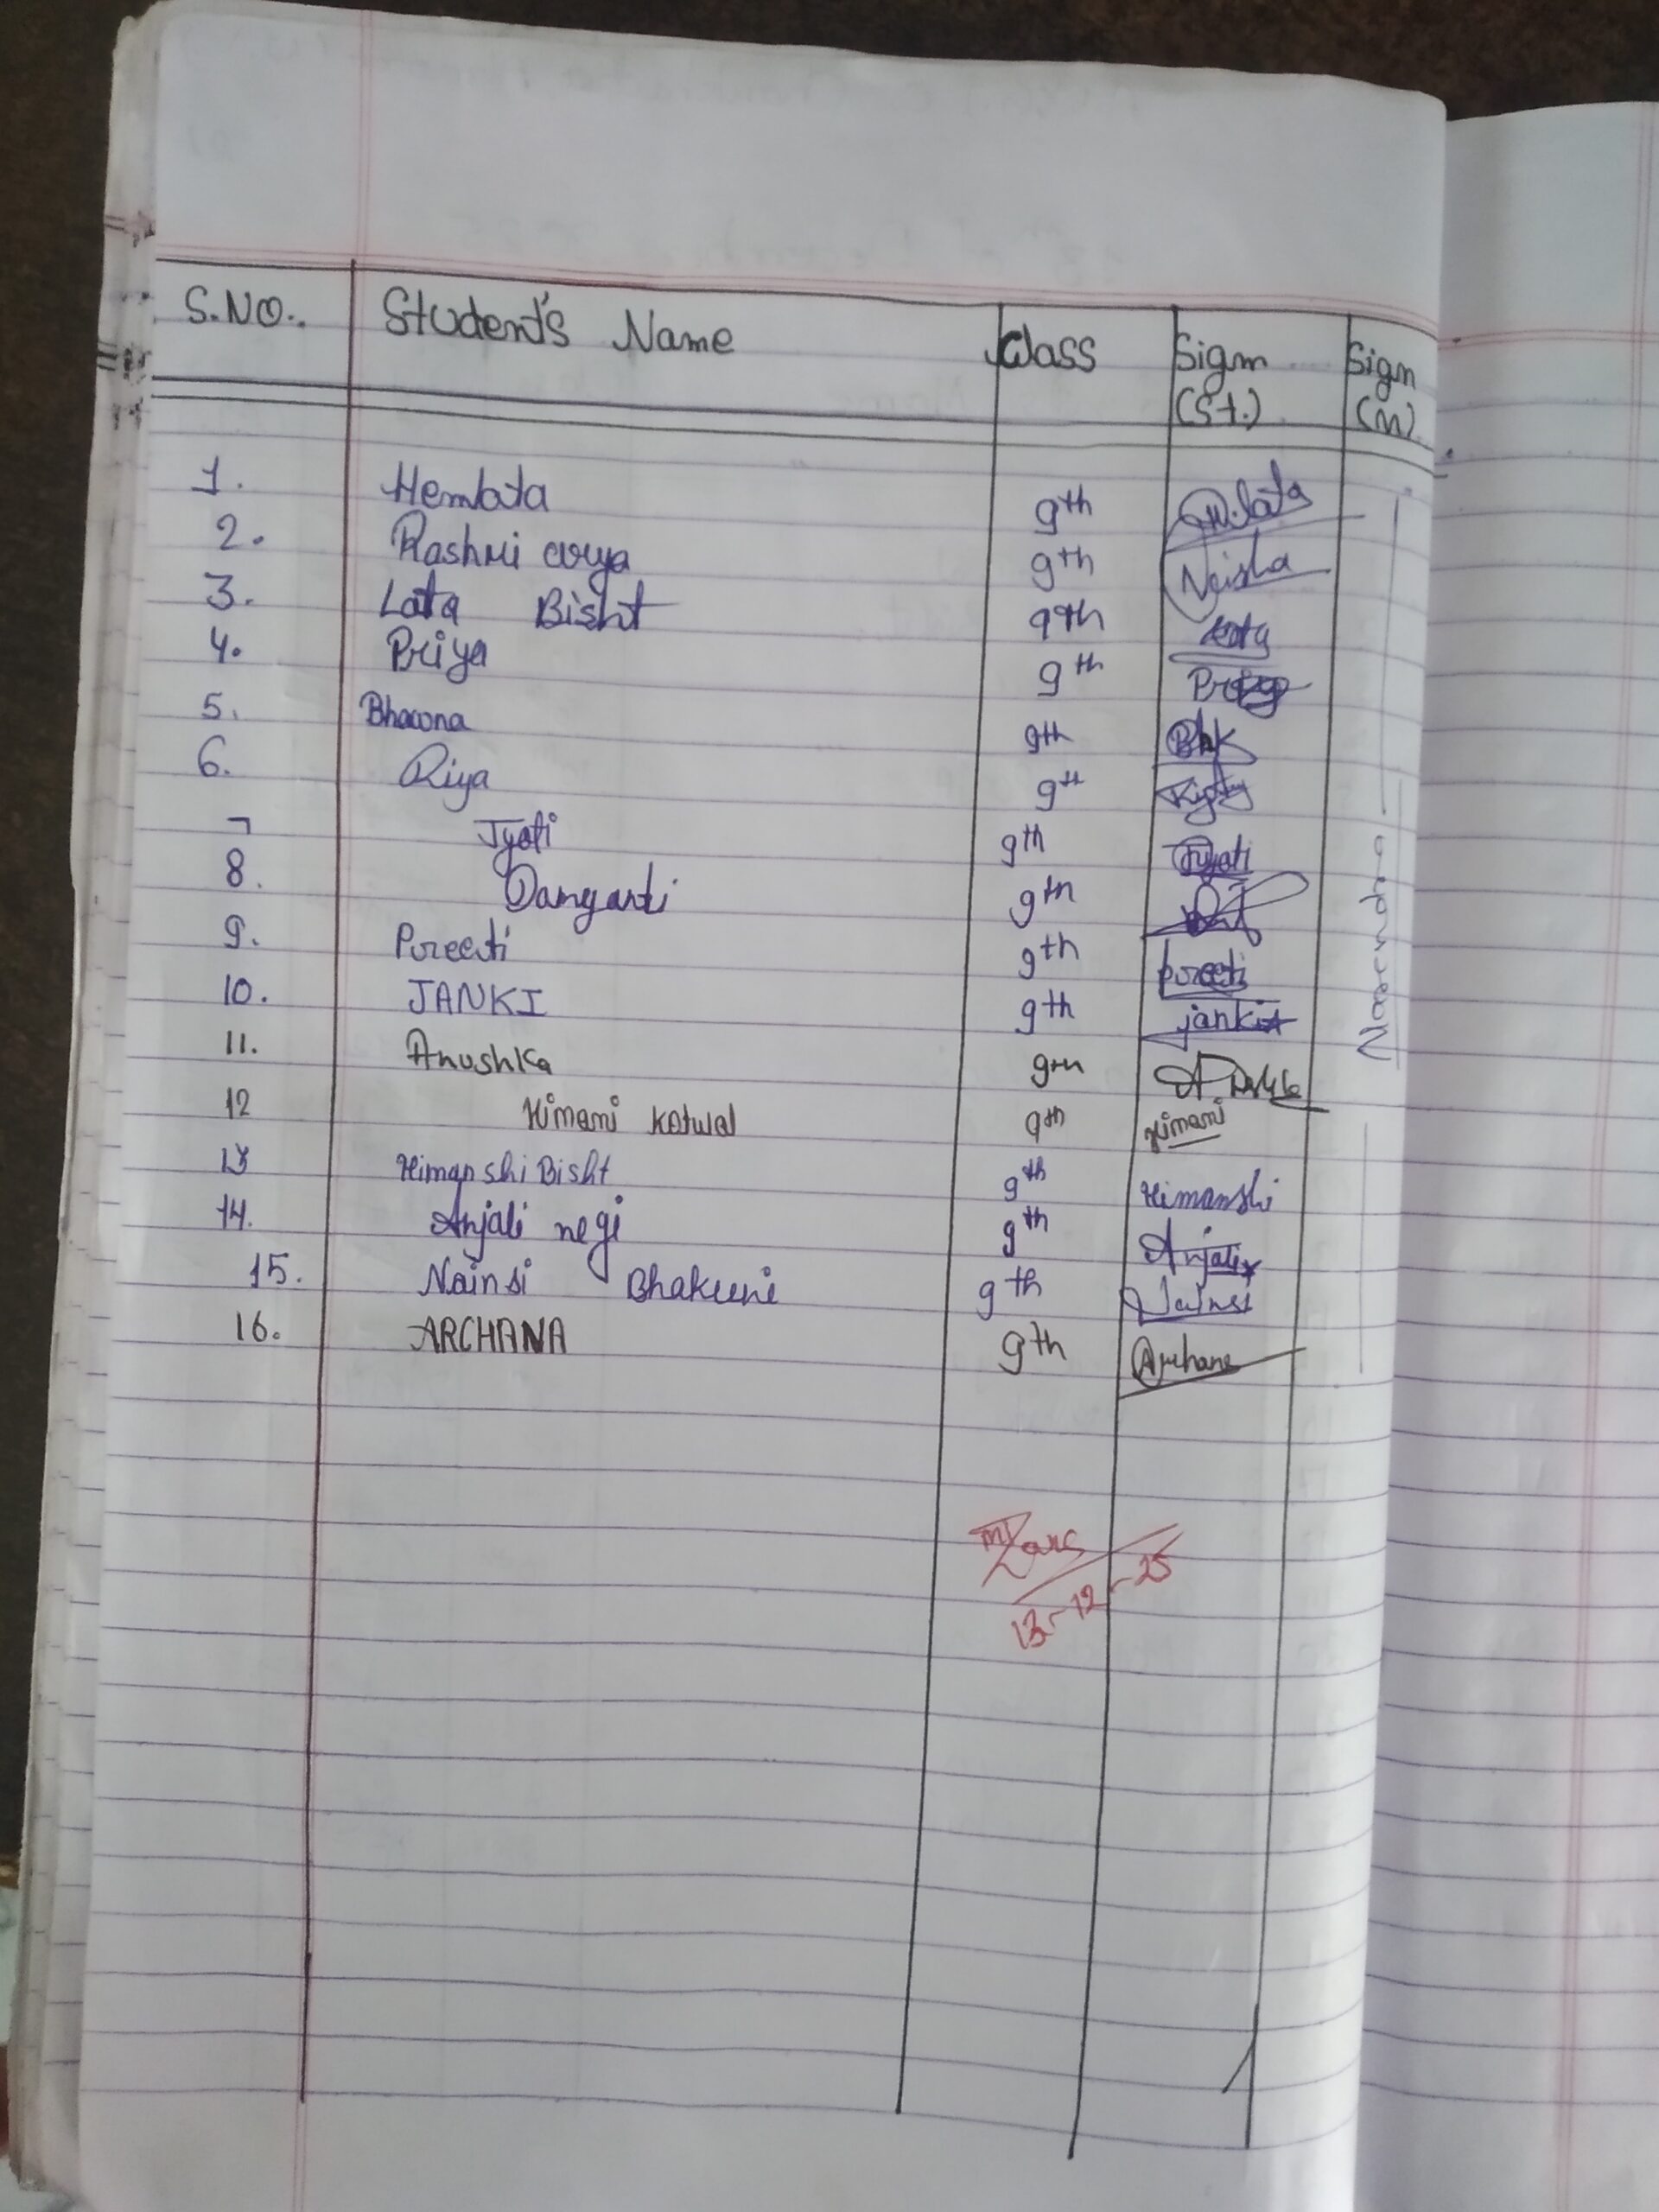 S.NO. Student's Name Class Sign (St.) Sign (M)
1. Hemlata 9th H.lata
2. Rashmi arya 9th
3. Lata Bisht 9th Lata
4. Priya 9th Priya
5. Bhawna 9th
6. Riya 9th
7 Jyoti 9th Jyoti
8. Damyanti 9th
9. Preeti 9th preeti
10. JANKI 9th janki
11. Anushka 9th
12 Himani Katwal 9th Himani
13 Himanshi Bisht 9th Himanshi
14. Anjali negi 9th Anjali
15. Nainsi Bhakuni 9th Nainsi
16. ARCHANA 9th Archana
Narendra
13-12-25